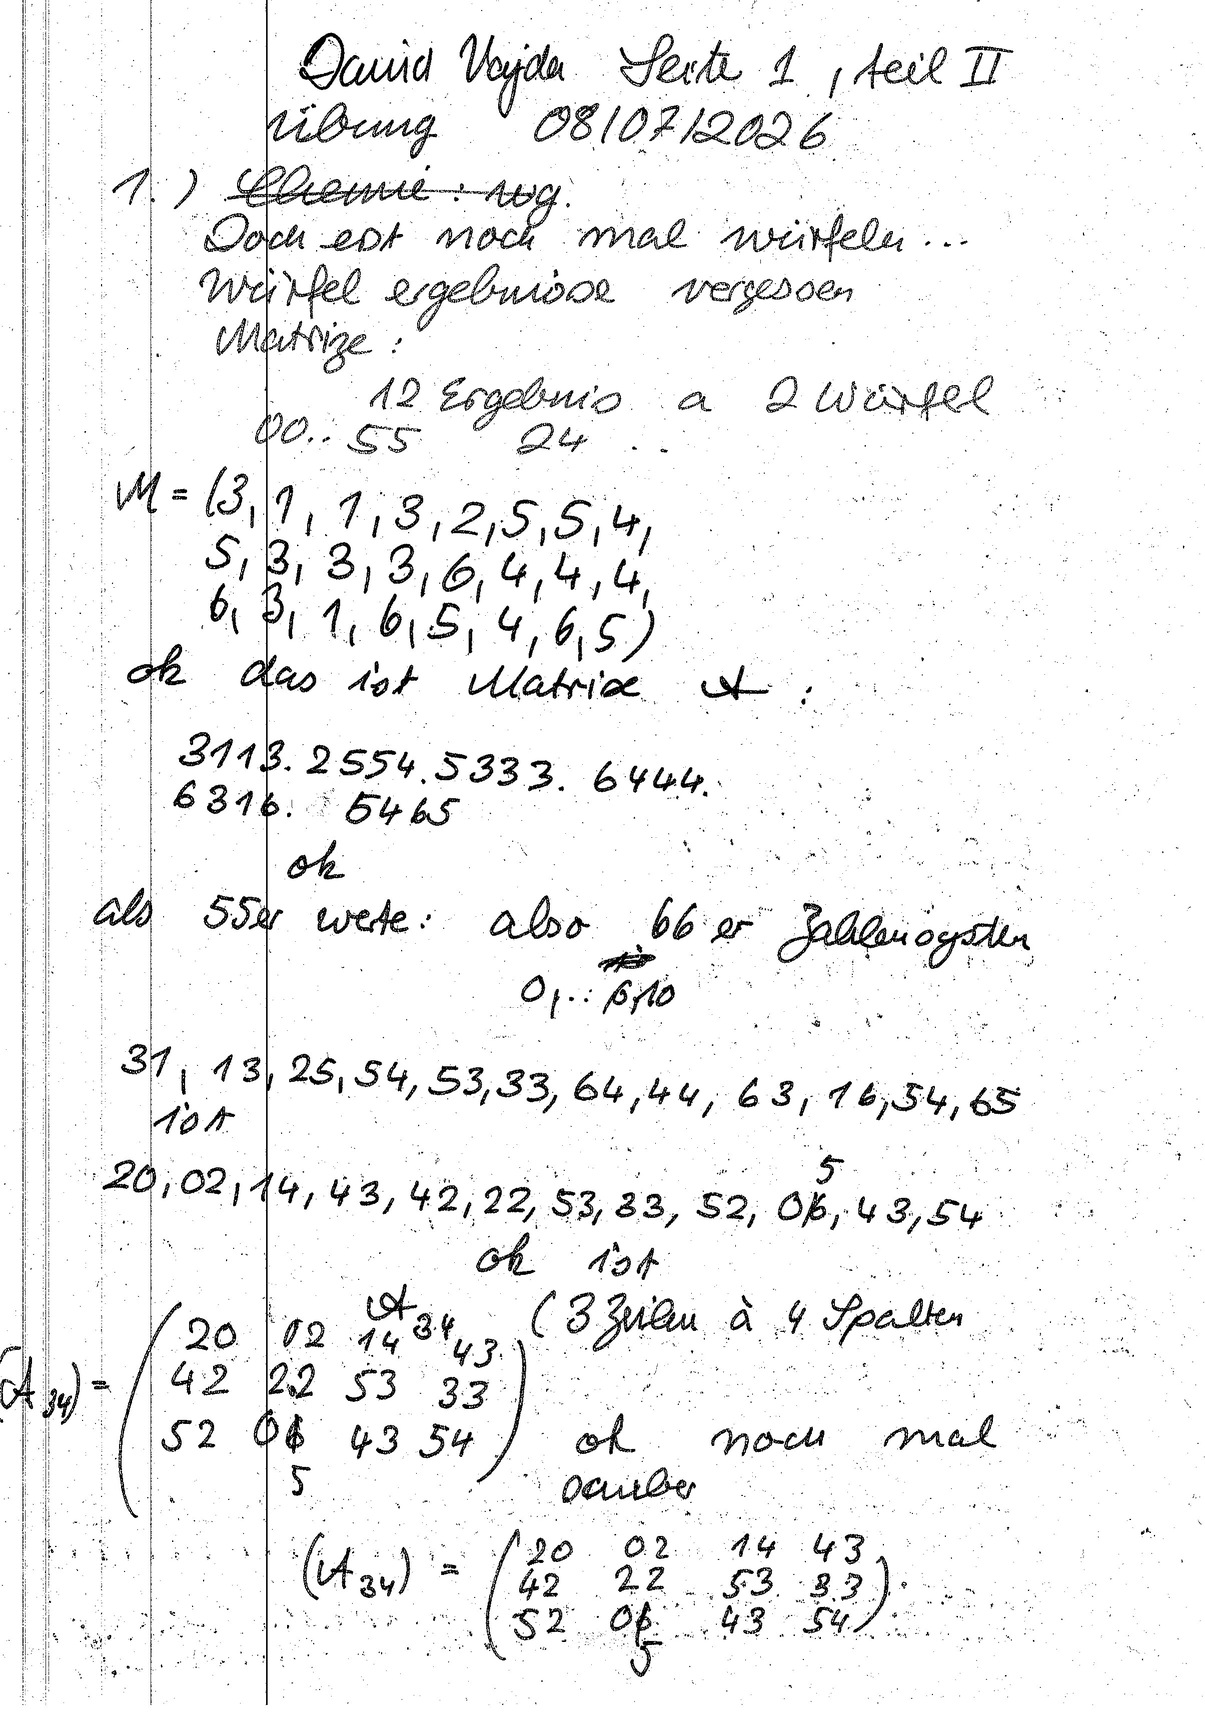 David Vajda Seite 1, teil II
übung 08/07/2026
1.) Chemie: wg.
Doch erst noch mal würfeln...
Würfel ergebnisse vergessen
Matrize:
12 Ergebnis a 2 Würfel
00.. 55 24 ..
M = (3, 1, 1, 3, 2, 5, 5, 4,
5, 3, 3, 3, 6, 4, 4, 4,
6, 3, 1, 6, 5, 4, 6, 5)
ok das ist Matrixe A:
3113. 2554. 5333. 6444.
6316. 5465
ok
als 55er werte: also 66er Zahlensystem
0,..
31, 13, 25, 54, 53, 33, 64, 44, 63, 16, 54, 65
ist
5
20, 02, 14, 43, 42, 22, 53, 33, 52, 06, 43, 54
ok ist
A34 (3 Zeilen à 4 Spalten
20 02 14 43
(A34) = 42 22 53 33
52 06 43 54 ok noch mal
5 sauber
20 02 14 43
(A34) = 42 22 53 33.
52 06 43 54
5